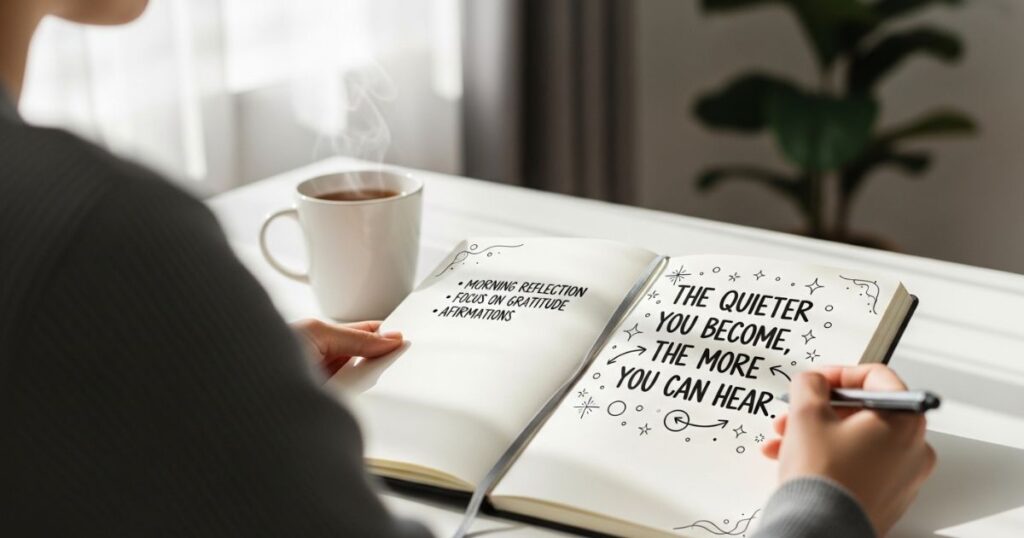 • MORNING REFLECTION
• FOCUS ON GRATITUDE
• AFIRMATIONS
THE QUIETER
YOU BECOME,
THE MORE
YOU CAN HEAR.